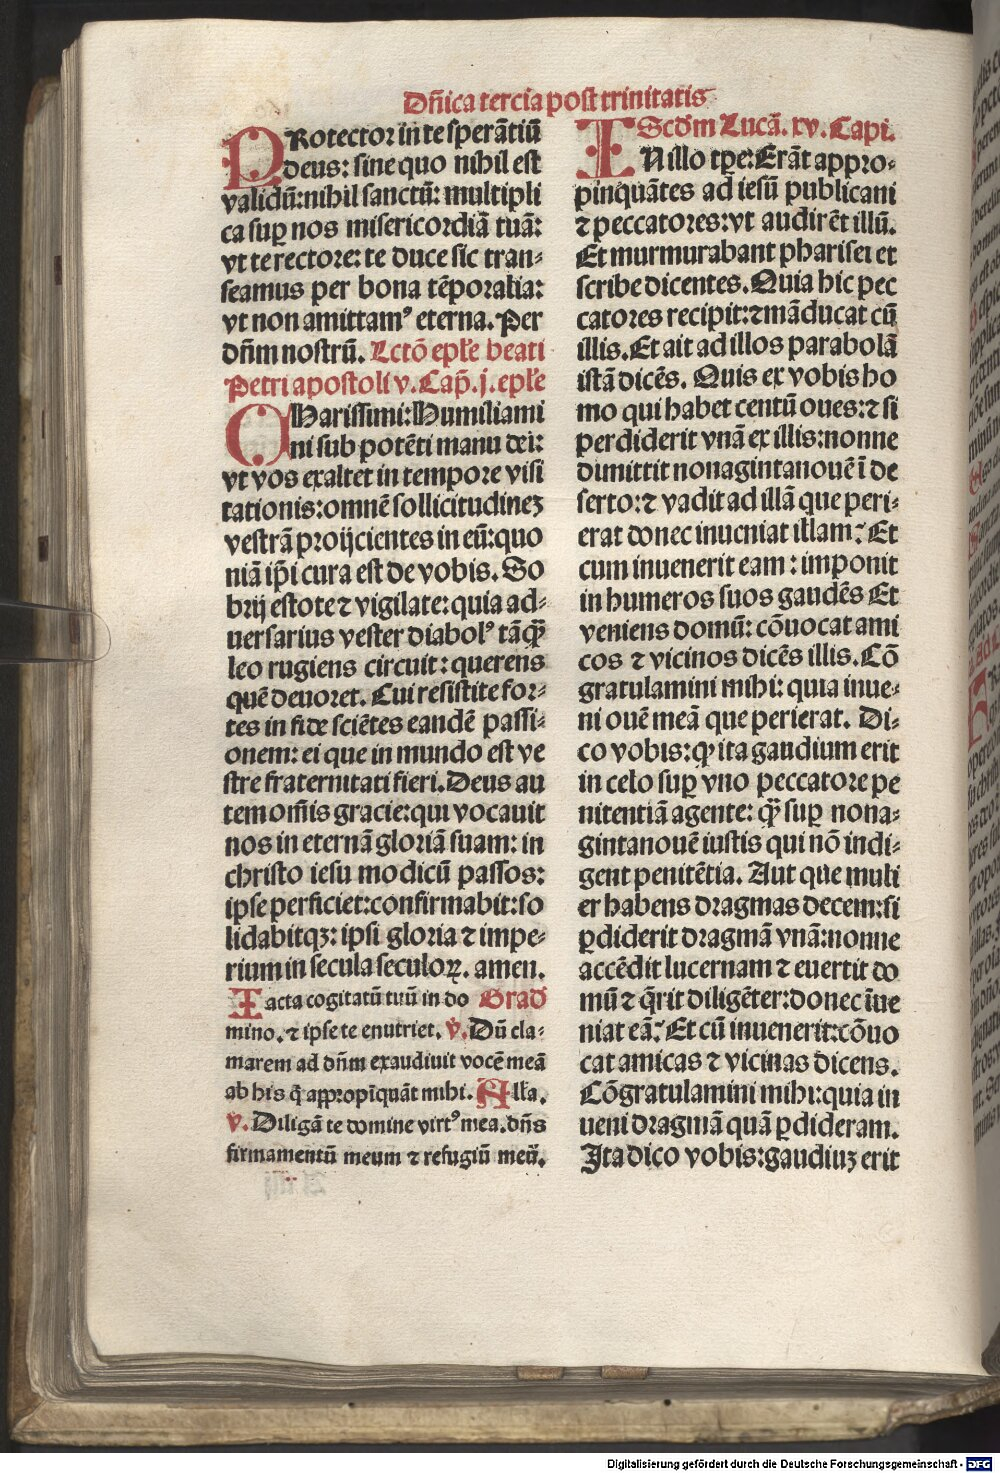 Dñica tercia post trinitatis
PRotector in te sperãtiũ
deus: sine quo nihil est
validũ: nihil sanctũ: multipli
ca sup nos misericordiã tuã:
vt te rectore: te duce sic tran⸗
seamus per bona tẽporalia:
vt non amittamꝰ eterna. Per
dñm nostrũ. Lctõ epl̃e beati
Petri apostoli v. Cap̃. j. epl̃e
CHarissimi: Humiliami
ni sub potẽti manu dei:
vt vos exaltet in tempore visi
tationis: omnẽ sollicitudineꝫ
vestrã proijcientes in eũ: quo
niã ip̃i cura est de vobis. So
brij estote ⁊ vigilate: quia ad⸗
uersarius vester diabolꝰ tãꝙ̃
leo rugiens circuit: querens
quẽ deuoret. Cui resistite for⸗
tes in fide sciẽtes eandẽ passi⸗
onem: ei que in mundo est ve
stre fraternitati fieri. Deus au
tem om̃is gracie: qui vocauit
nos in eternã gloriã suam: in
christo iesu modicũ passos:
ipse perficiet: confirmabit: so
lidabitqꝫ: ipsi gloria ⁊ impe⸗
rium in secula seculoꝝ. amen.
Iacta cogitatũ tuũ in do Grad̃
mino. ⁊ ipse te enutriet. ℣. Dũ cla⸗
marem ad dñm exaudiuit vocẽ meã
ab his q̃ appropĩquãt mihi. All̃a.
℣. Diligã te domine virtꝰ mea. dñs
firmamentũ meum ⁊ refugiũ meũ.
Scd̃m Lucã. xv. Capi.
IN illo tpe: Erãt appro⸗
pinquãtes ad iesũ publicani
⁊ peccatores: vt audirẽt illũ.
Et murmurabant pharisei et
scribe dicentes. Quia hic pec
catores recipit: ⁊ mãducat cũ
illis. Et ait ad illos parabolã
istã dicẽs. Quis ex vobis ho
mo qui habet centũ oues: ⁊ si
perdiderit vnã ex illis: nonne
dimittit nonagintanouẽ ĩ de
serto: ⁊ vadit ad illã que peri⸗
erat donec inueniat illam: Et
cum inuenerit eam: imponit
in humeros suos gaudẽs Et
veniens domũ: cõuocat ami
cos ⁊ vicinos dicẽs illis. Cõ
gratulamini mihi: quia inue⸗
ni ouẽ meã que perierat. Di⸗
co vobis: ꝙ ita gaudium erit
in celo sup vno peccatore pe
nitentiã agente: ꝙ̃ sup nona⸗
gintanouẽ iustis qui nõ indi⸗
gent penitẽtia. Aut que muli
er habens dragmas decem: si
ꝑdiderit dragmã vnã: nonne
accẽdit lucernam ⁊ euertit do
mũ ⁊ q̃rit diligẽter: donec ĩue
niat eã: Et cũ inuenerit: cõuo
cat amicas ⁊ vicinas dicens.
Cõgratulamini mihi: quia in
ueni dragmã quã ꝑdideram.
Ita dico vobis: gaudiuꝫ erit
Digitalisierung gefördert durch die Deutsche Forschungsgemeinschaft - DFG